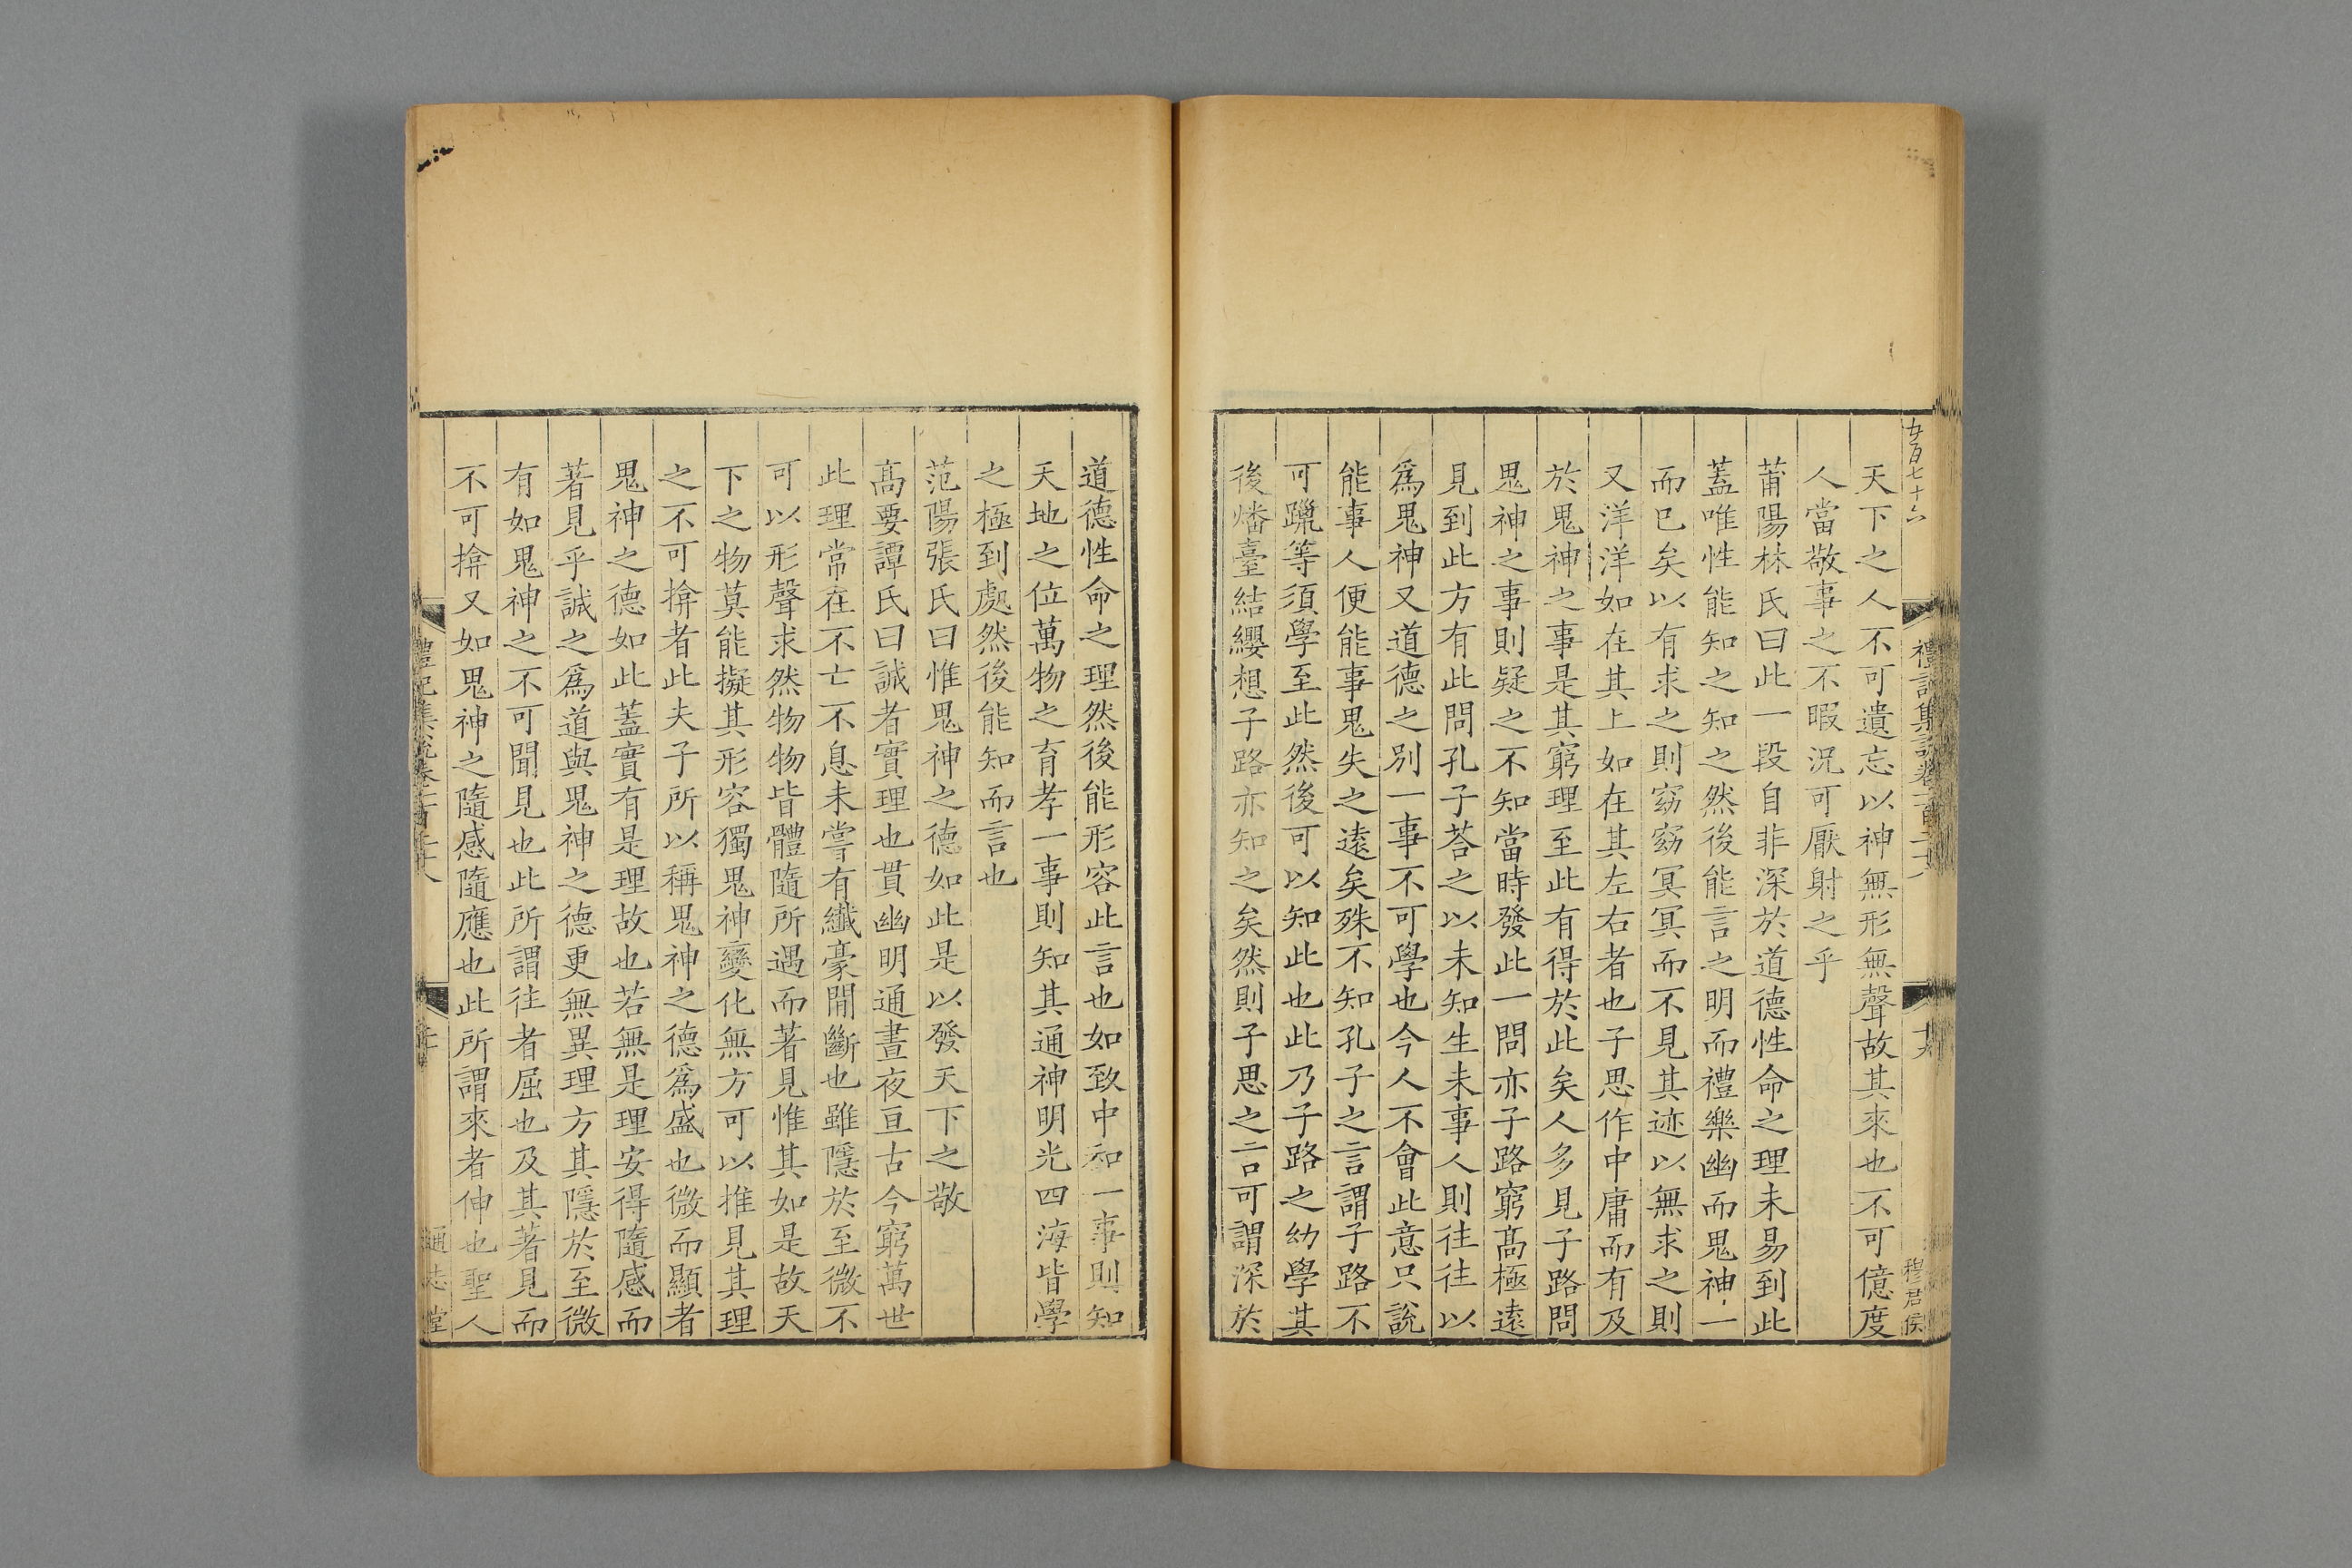 天下之人不可遺忘以神無形無聲故其來也不可億度
人當敬事之不暇況可厭射之乎
莆陽林氏曰此一段自非深於道德性命之理未易到此
蓋唯性能知之知之然後能言之明而禮樂幽而鬼神一
而已矣以有求之則窈窈冥冥而不見其迹以無求之則
又洋洋如在其上如在其左右者也子思作中庸而有及
於鬼神之事是其窮理至此有得於此矣人多見子路問
鬼神之事則疑之不知當時發此一問亦子路窮髙極遠
見到此方有此問孔子荅之以未知生未事人則往往以
爲鬼神又道德之別一事不可學也今人不會此意只說
能事人便能事鬼失之遠矣殊不知孔子之言謂子路不
可躐等須學至此然後可以知此也此乃子路之幼學其
後燔臺結纓想子路亦知之矣然則子思之言可謂深於
禮記集說卷一百二十八
十九
穆君侯
道德性命之理然後能形容此言也如致中和一事則知
天地之位萬物之育孝一事則知其通神明光四海皆學
之極到處然後能知而言也
范陽張氏曰惟鬼神之德如此是以發天下之敬
髙要譚氏曰誠者實理也貫幽明通晝夜亘古今窮萬世
此理常在不亡不息未嘗有纖豪閒斷也雖隱於至微不
可以形聲求然物物皆體隨所遇而著見惟其如是故天
下之物莫能擬其形容獨鬼神變化無方可以推見其理
之不可揜者此夫子所以稱鬼神之德爲盛也微而顯者
鬼神之德如此蓋實有是理故也若無是理安得隨感而
著見乎誠之爲道與鬼神之德更無異理方其隱於至微
有如鬼神之不可聞見也此所謂往者屈也及其著見而
不可揜又如鬼神之隨感隨應也此所謂來者伸也聖人
禮記集說卷一百二十八
二十
通志堂